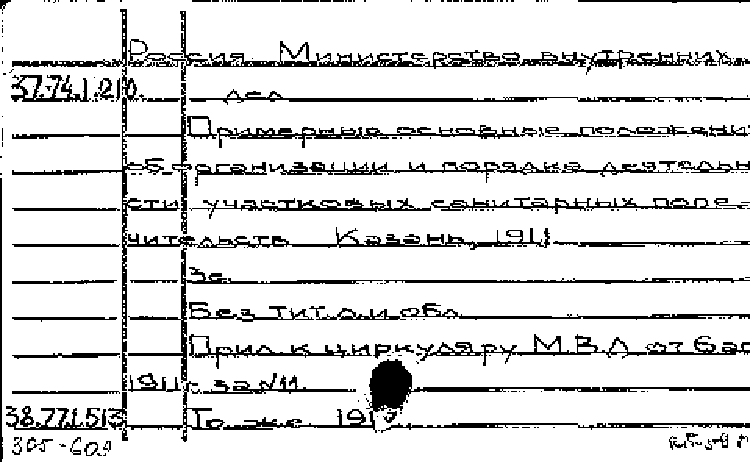 Россия Министерство внутренних
37.74.1.210. дел
Примерные основные положени
об организации и порядке деятельн
сти участковых санитарных попе-
чительств Казань, 1911
3с.
Без тит.л. и обл
Прил к циркуляру М.В.Д от 6 ап
1911г за №11.
38.77.1.513 То же 191
305-609